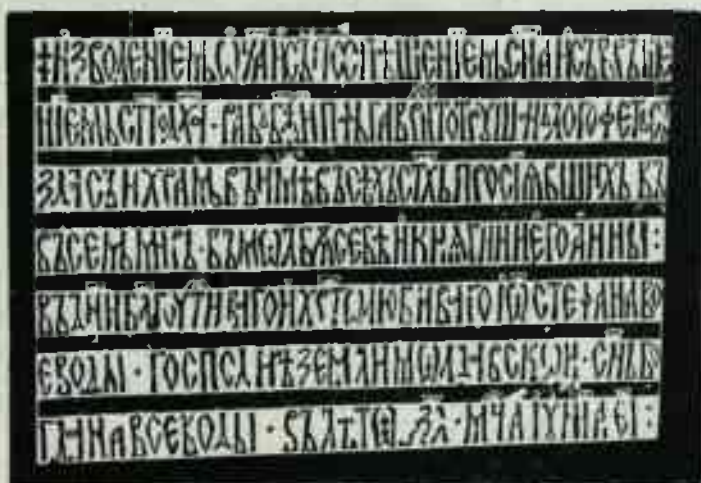 ‡ИЗВОЛЕНІЕМЬѠЧАИСЪПОСПѢШЕНІЕМЬСНАИСЪВРЪШЕ
НІЕМЬСТГОДХА · РАБЪБЖІИПАНЬГАВРИЛТОТРУШАНЛОГОФЕТСЪ
ЗДАСЪИХРАМЬВЪИМѢВЪСѢХЬСТХЬПРОСІѪВШИХЬВЪ
ВЪСЕМЬМИРѢ · ВЪМѠЛБѪСЕБѢИКНѦГИНИЕГОАННЫ :
ВЪДНИБЛГОЧТИВАГОИХРТОЛЮБИВАГОІѠСТЕФАНАВО
ЕВОДЫ · ГОСПОДАРѢЗЕМЛИМѠЛДАВСКОИ · СНЬБО
ГДАНАВОЕВОДЫ · ВЪЛѢТѠ ҂ЗЛ · МЧАІУНІАЕІ :